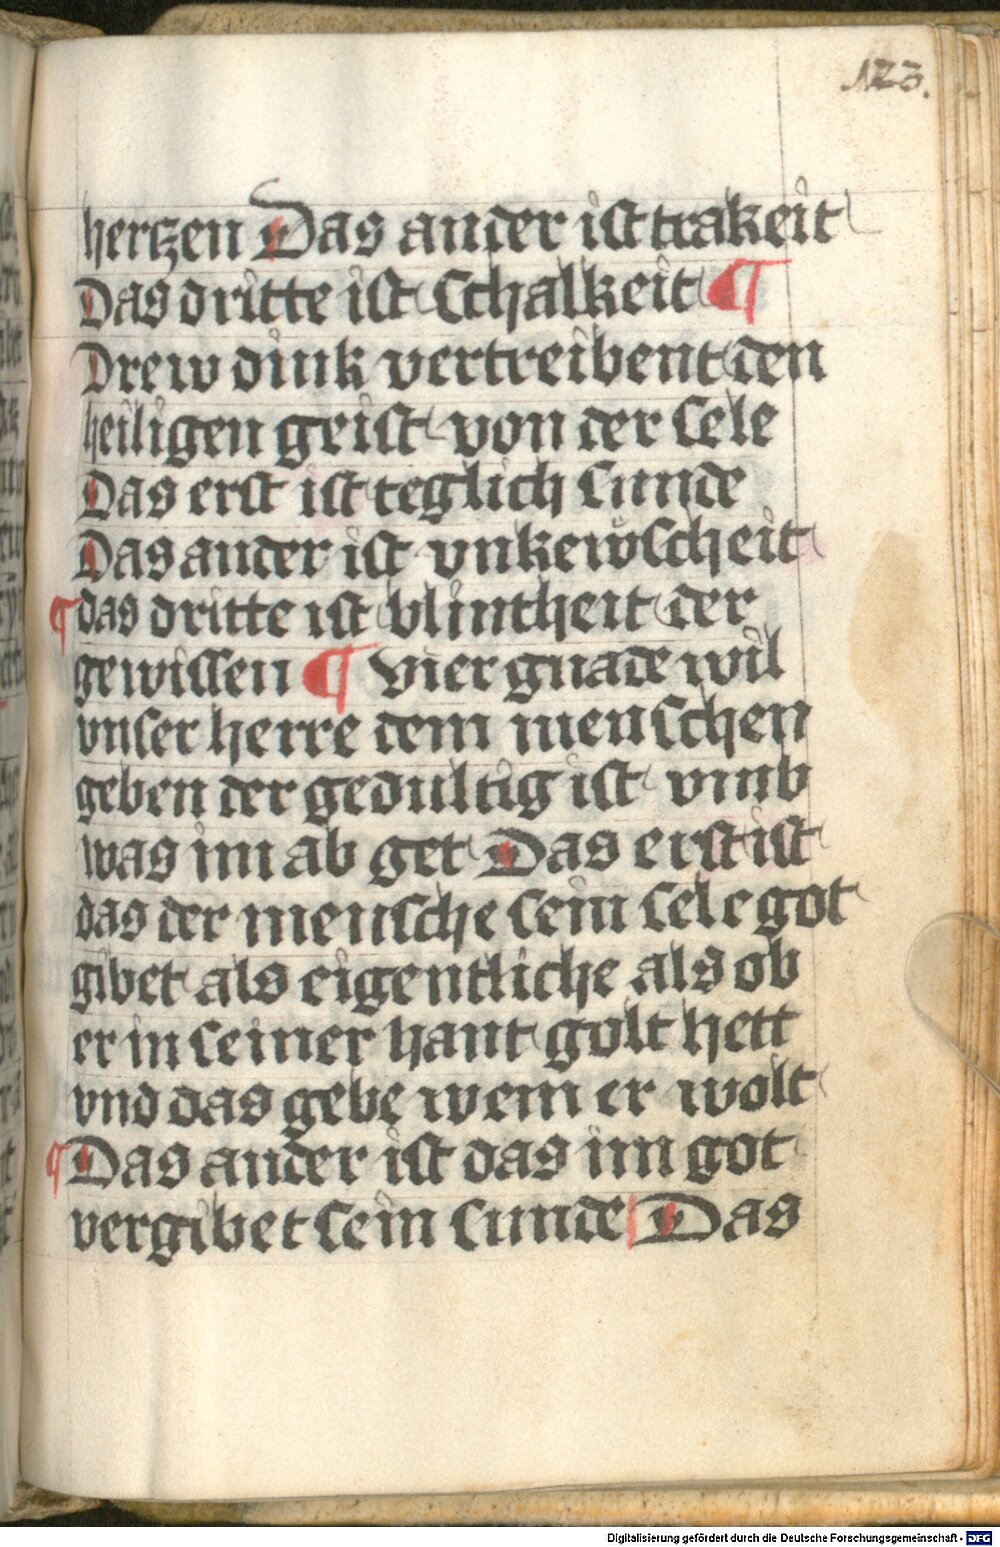 123.
hertzen Das ander ist trakeit
Das dritte ist Schalkeit ¶
Drew dink vertreibent den
heiligen geist von der sele
Das erst ist teglich sunde
Das ander ist vnkewscheit
¶ das dritte ist blintheit der
gewissen ¶ vier gnade wil
vnser herre dem menschen
geben der gedultig ist vmb
was im ab get Das erst ist
das der mensche sein sele got
gibet als eigentliche als ob
er in seiner hant golt hett
vnd das gebe wem er wolt
¶ Das ander ist das im got
vergibet sein sunde Das
Digitalisierung gefördert durch die Deutsche Forschungsgemeinschaft - DFG